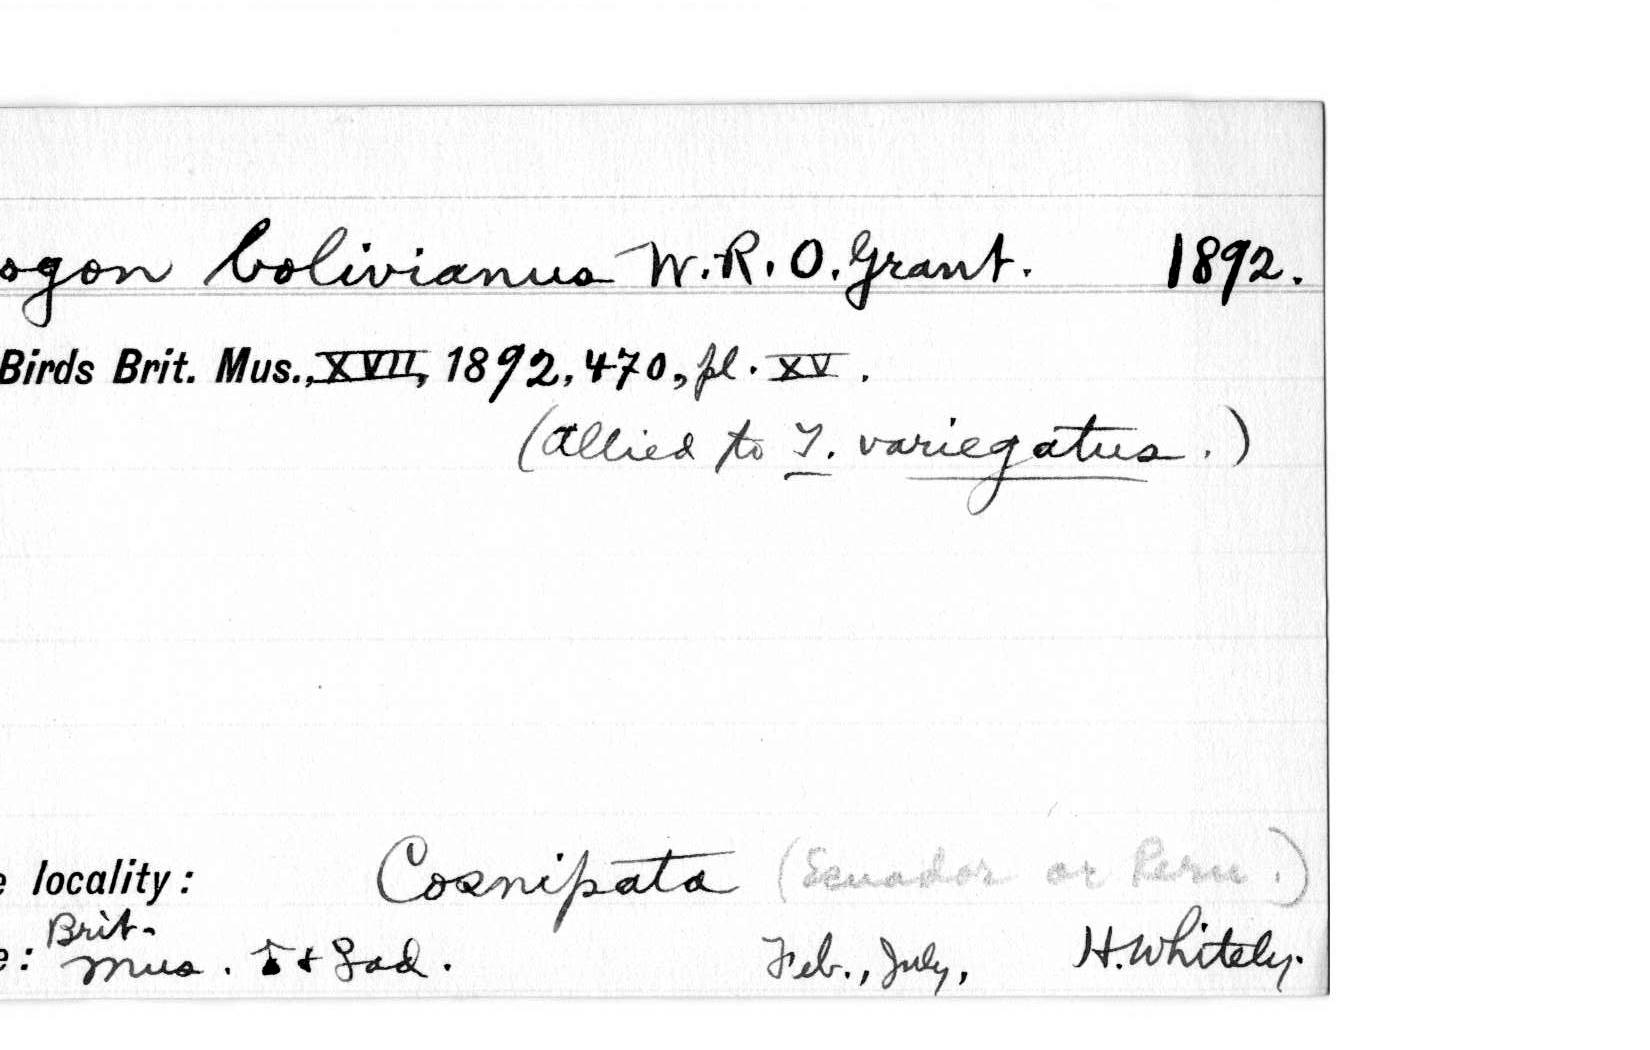 ogon bolivianus W.R.O. Grant. 1892.
Birds Brit. Mus., XVII, 1892, 470, pl. XV.
(Allied to T. variegatus.)
e locality: Cosnipata (Ecuador or Peru.)
Brit.
e: Mus. ♂ + ♀ ad. Feb., July, H. Whitely.